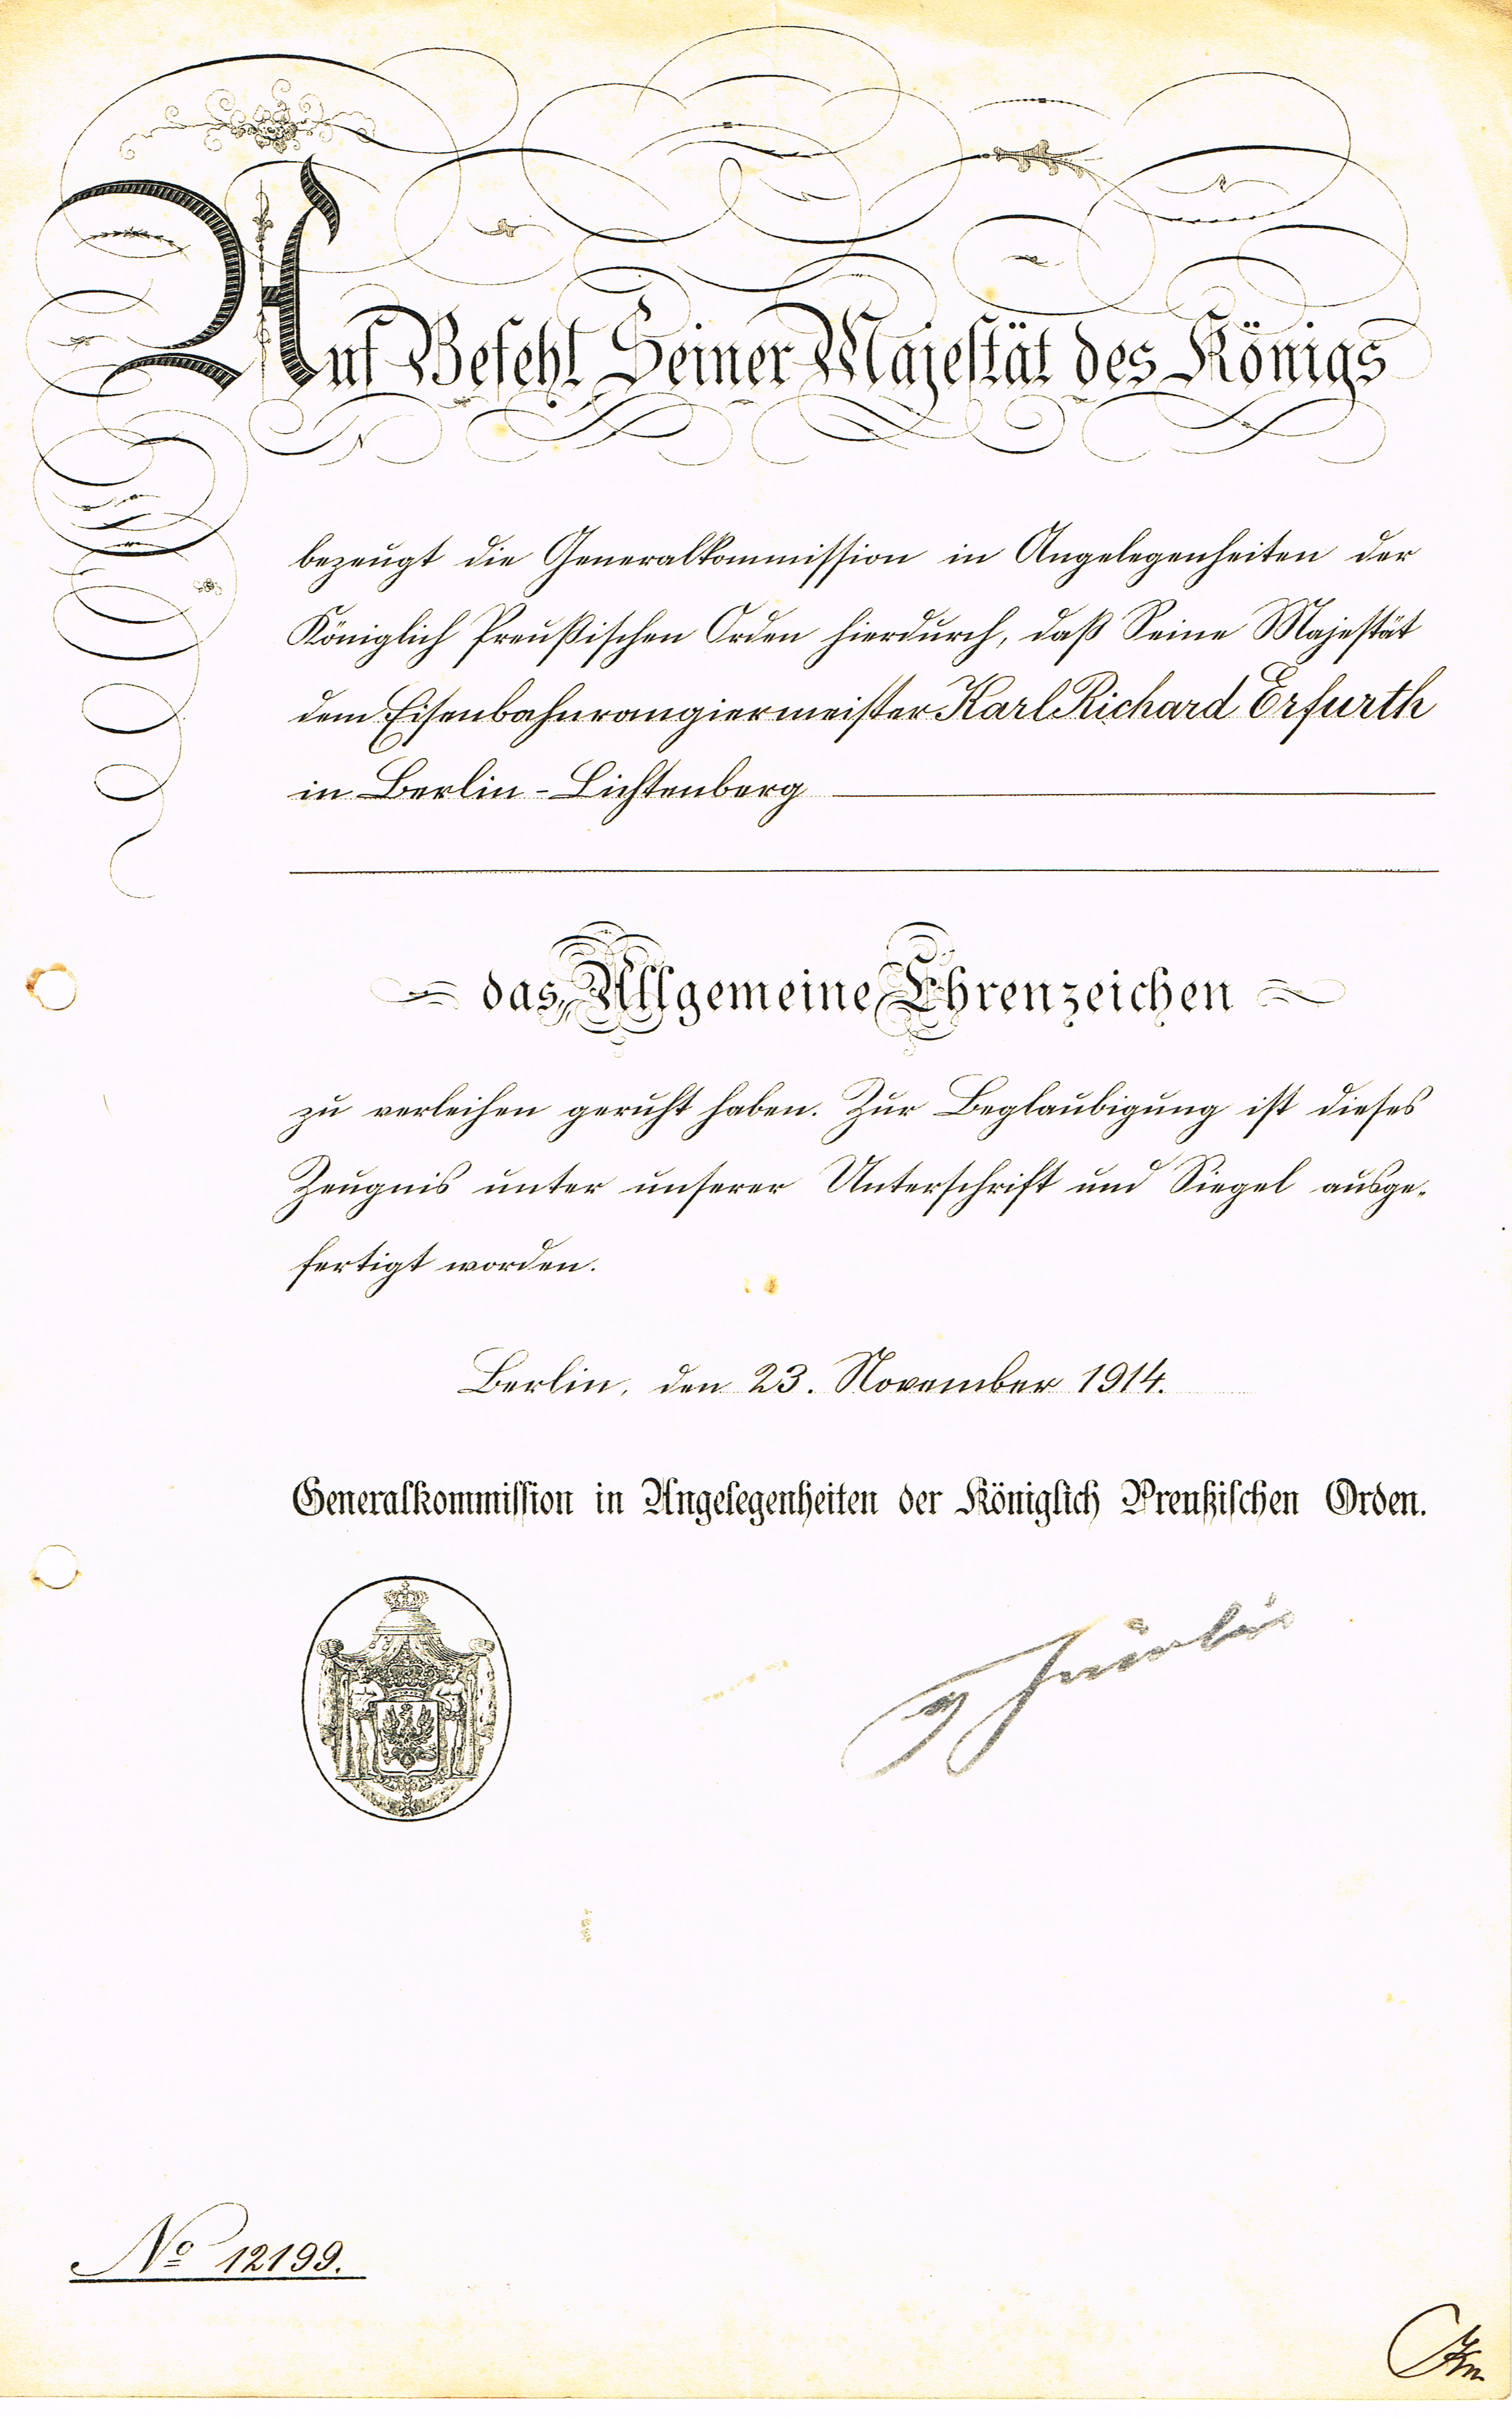 Auf Befehl Seiner Majestät des Königs
bezeugt die Generalkommission in Angelegenheiten der
Königlich Preußischen Orden hierdurch, daß Seine Majestät
dem Eisenbahnrangiermeister Karl Richard Erfurth
in Berlin-Lichtenberg
das Allgemeine Ehrenzeichen
zu verleihen geruht haben. Zur Beglaubigung ist dieses
Zeugnis unter unserer Unterschrift und Siegel ausge-
fertigt worden.
Berlin, den 23. November 1914.
Generalkommission in Angelegenheiten der Königlich Preußischen Orden.
No 12199.